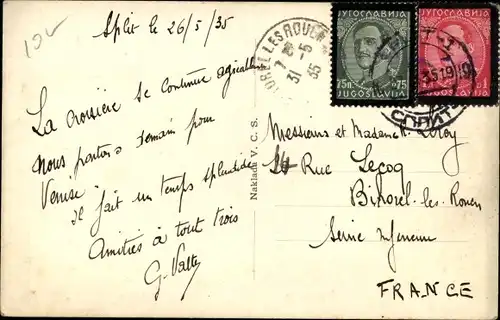 Split le 26/5/35
La croisière se continue agréablement
Nous partons demain pour
Venise
il fait un temps splendide
Amitiés à tout trois
G. Valte
Naklada V. C. S.
BIHOREL LES ROUEN
7
31 -5
35
ЈУГОСЛАВИЈА
75п. 75
JUGOSLAVIJA
ЈУГОСЛАВИЈА
JUGOSLAVIJA
SPLIT
СПЛИТ
Messieurs et Madame Leroy
24 Rue Lecoq
Bihorel-les-Rouen
Seine Inférieure
FRANCE